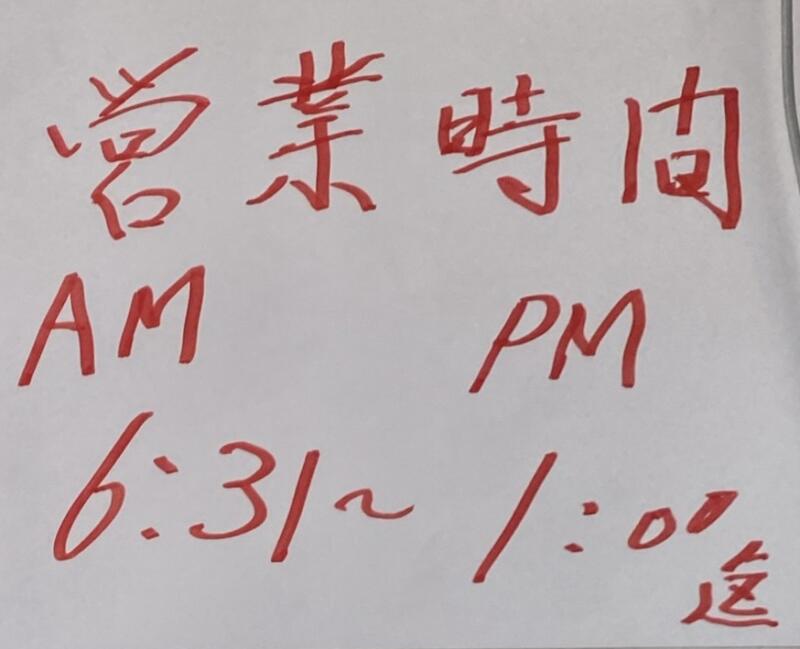 営業時間
AM PM
6:31～1:00
迄